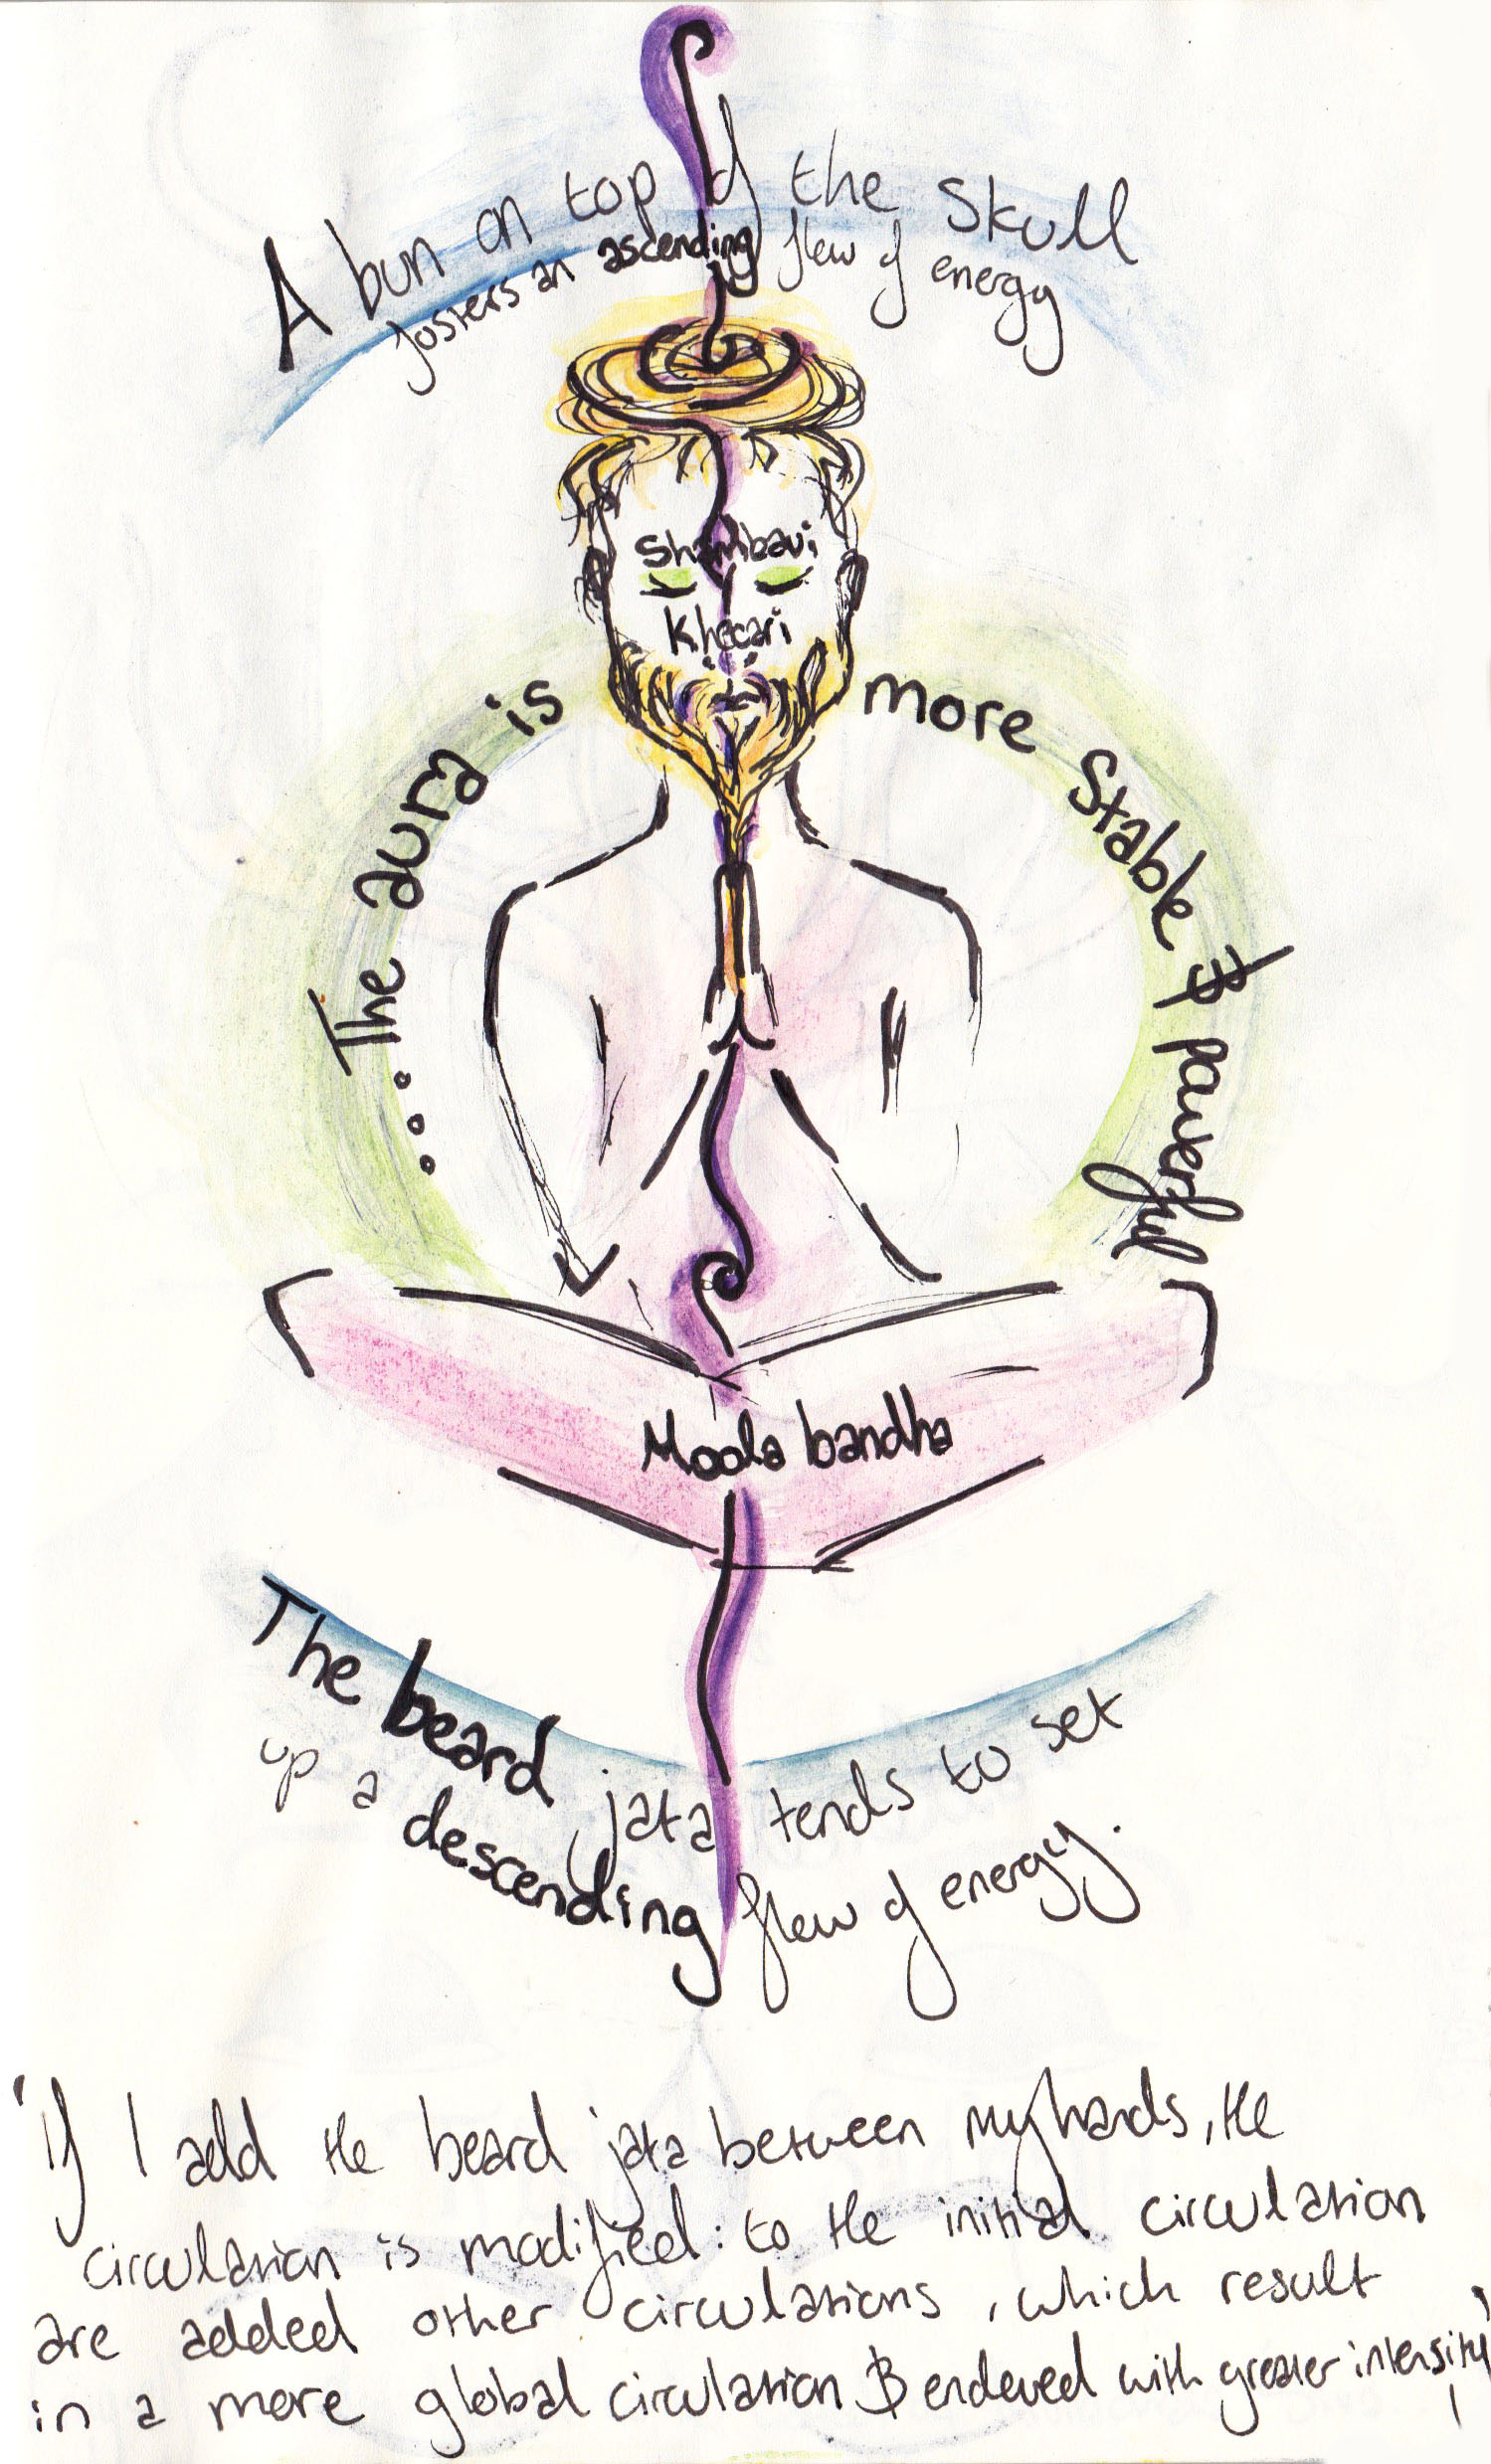 A bun on top of the skull
fosters an ascending flow of energy
Shambavi
Khecari
... The aura is more stable & powerful
Moola bandha
The beard jata tends to set
up a descending flow of energy.
"If I add the beard jata between my hands, the
circulation is modified: to the initial circulation
are added other circulations, which result
in a more global circulation & endowed with greater intensity,"